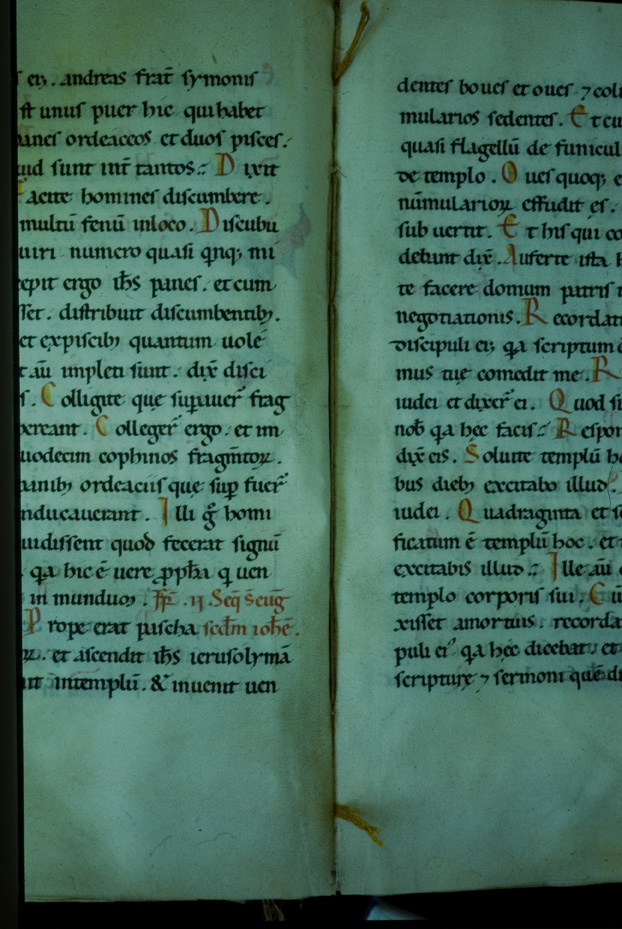 s ei᷒. andreas frat̄ symonis
st unus puer hic qui habet
panes ordeaceos et duos pisces.
quid sunt int̄ tantos: Dixit
Facite homines discumbere.
multū fenū in loco. Discubu
uiri numero quasi qnq; mi
cepit ergo ih̄s panes. et cum
sset. distribuit discumbentib;.
et ex piscib; quantum uole
t aū impleti sunt. dix̄ disci
s. Colligite que supauer̄ frag
pereant. Colleger̄ ergo. et im
uodecim cophinos fragm̄toꝝ.
panib; ordeaciis que sup fuer̄
nducauerant. Illi ḡ homi
uidissent quod fecerat signū
. qa hic ē uere ꝓph̄a q uen
in mundum. Fr̄. ii. Seq̄ s̄ euḡ
Prope erat pascha sed̄m ioh̄e.
ꝝ. et ascendit ih̄s ierusolymā
nit in templū. & inuenit uen
dentes boues et oues ⁊ colū
mularios sedentes. Et cu
quasi flagellū de funicul
de templo. Oues quoq; e
nūmularioꝝ effudit es.
sub uertit. Et his qui co
debant dix̄. Auferte ista h
te facere domum patris
negotiationis. Recordat
discipuli ei᷒ qa scriptum
mus tue comedit me. R
iudei et dixer̄ ei. Quod si
nob̄ qa hec facis: Respon
dix̄ eis. Soluite templū h
bus dieb; excitabo illud.
iudei. Quadraginta et s
ficatum ē templū hoc. et
excitabis illud: Ille aū
templo corporis sui. Cū
xisset amortuis. recorda
puli ei᷒ qa hec dicebat. et
scripture ⁊ sermoni quē di